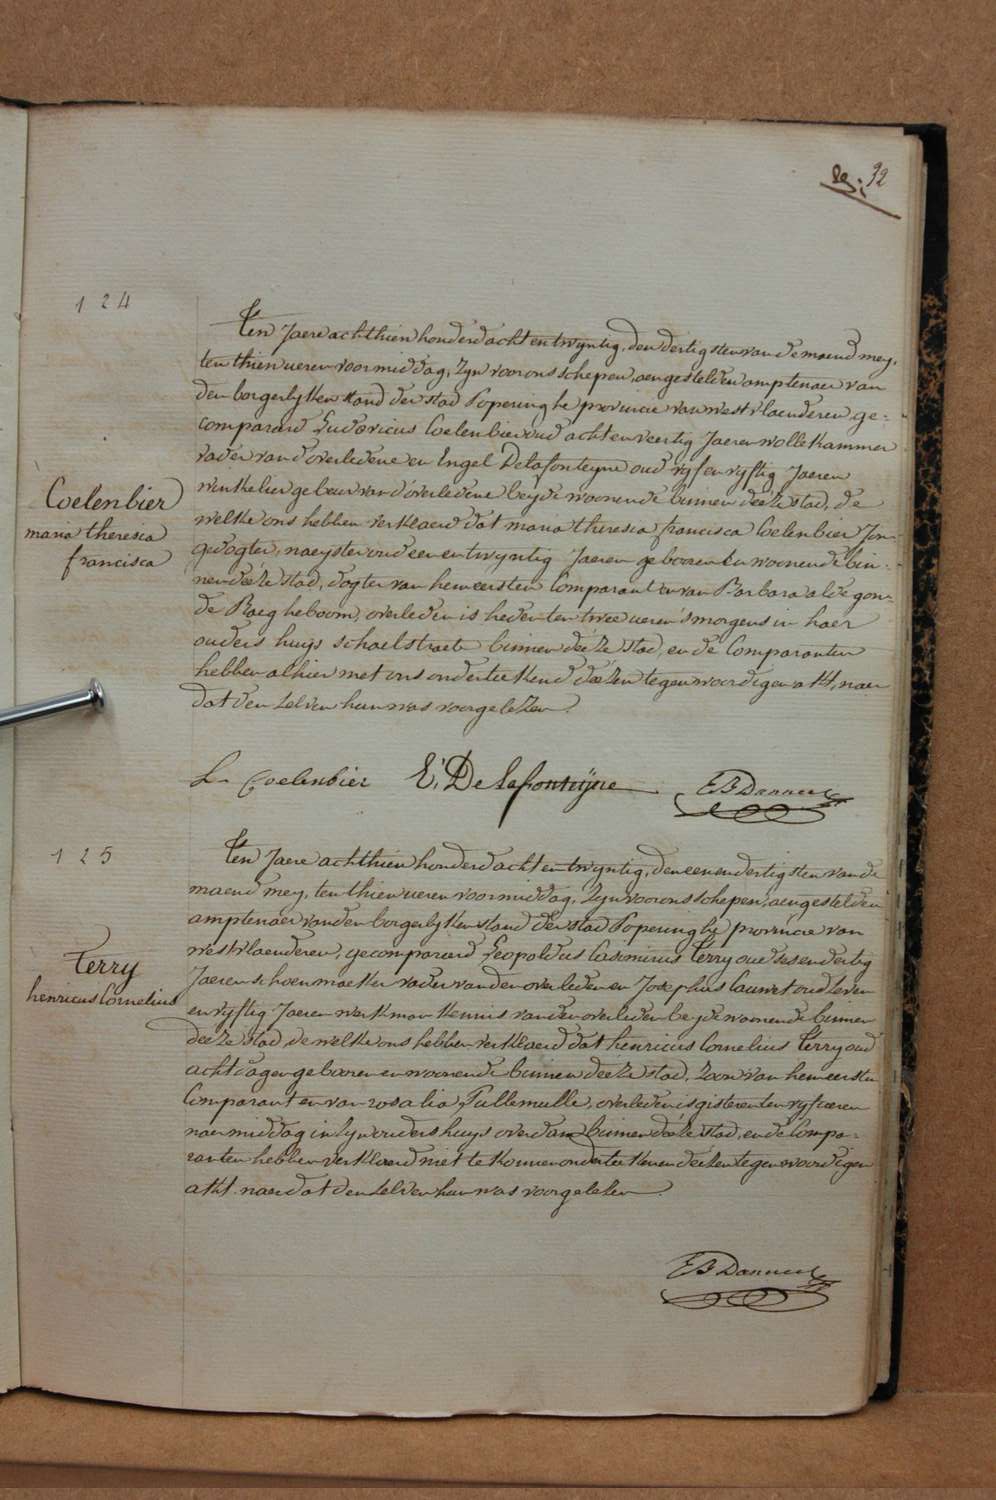 32
124
Ten Jaere achthien honderd acht en twyntig, den dertigsten van de maend mey,
ten thien ueren voormiddag, Zyn voor ons schepen, aengestelden amptenaer van
den borgerlyken stand der stad Poperinghe provincie van westvlaenderen ge=
compareerd Ludovicus Coelenbier oud acht en veertig Jaeren wollekammer
vader van d'overledene en Engel Delafonteyne oud vyf en vyftig Jaeren
winkelier gebeur van d'overledene beyde woonende binnen deéze stad, de
welke ons hebben verklaerd dat maria theresia francisca Coelenbier Jon=
gedogter, naeyster oud een en twyntig Jaeren gebooren en woonende bin=
nen deéze stad, dogter van hem eersten Comparant en van Barbara aldegon=
de Baegheboom, overleden is heden ten twee ueren s'morgens in haer
ouders huys schoelstraete binnen deéze stad, en de Comparanten
hebben alhier met ons onderteekend deézen tegenwoordigen akt, naer
dat den zelven hun was voorgelezen.
Coelenbier
maria theresia
francisca
L Coelenbier E, De Lafonteÿne
125
Ten Jaere achthien honderd acht en twyntig, den een en dertigsten van de
maend mey, ten thien ueren voormiddag, Zyn voor ons schepen, aengestelden
amptenaer van den borgerlyken stand der stad Poperinghe provincie van
westvlaenderen, gecompareerd Leopoldus Casimirus Terry oud ses en dertig
Jaeren schoenmaeker vader van den overleden en Josephus Cauwet oud zeven
en vyftig Jaeren werkman kennis van den overleden beyde woonende binnen
deéze stad, de welke ons hebben verklaerd dat henricus Cornelius Terry oud
acht dagen gebooren en woonende binnen deéze stad, zoon van hem eersten
Comparant en van rosalia Pillemulle, overleden is gisteren ten vyf ueren
naermiddag in zyn ouders huys overdam binnen deéze stad, en de Compa=
ranten hebben verklaerd niet te konnen onderteekenen deézen tegenwoordigen
akt. naerdat den zelven hun was voorgelezen.
Terry
henricus Cornelius